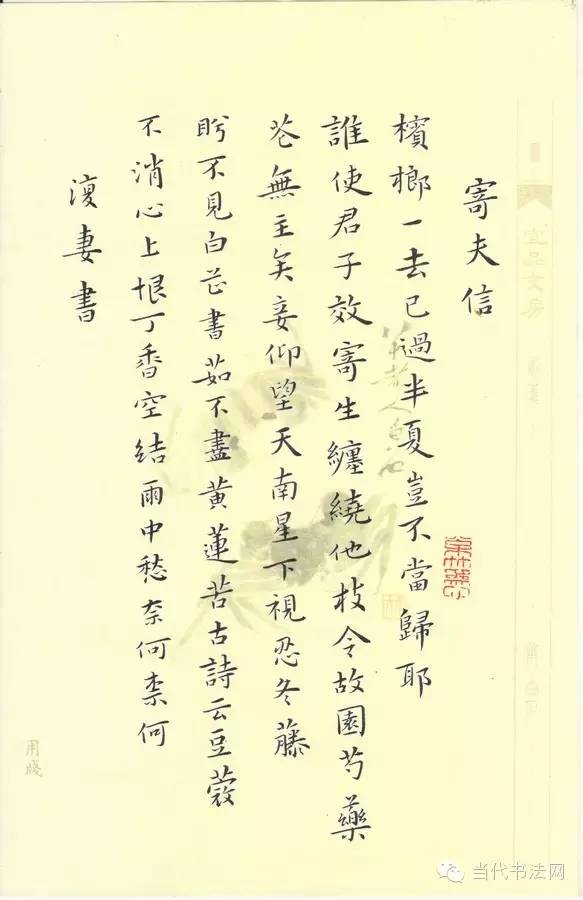 寄夫信
檳榔一去已過半夏豈不當歸耶
誰使君子效寄生纏繞他枝令故園芍藥
花無主矣妾仰望天南星下視忍冬藤
盻不見白芷書茹不盡黃蓮苦古詩云豆蔻
不消心上恨丁香空結雨中愁奈何柰何
妻書
宜品文房
用牋
当代书法网